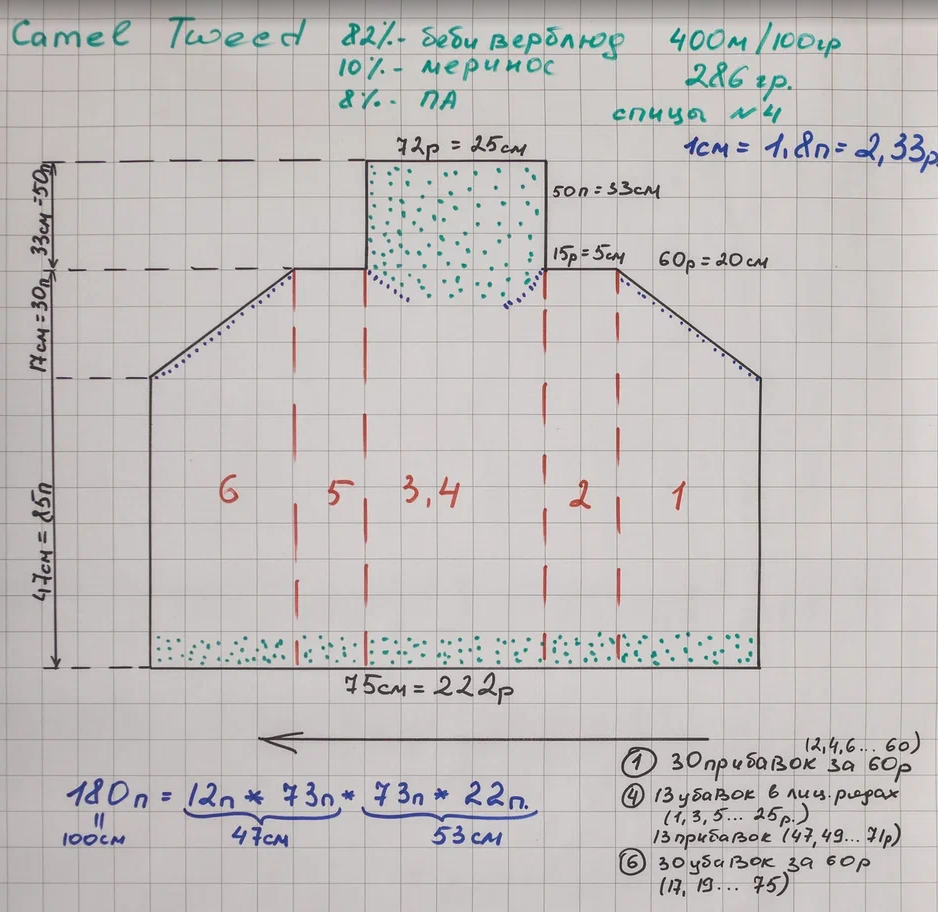 Camel Tweed 82%- беби верблюд 400м/100гр
10%- меринос 286 гр.
8%- ПА спицы №4
1см = 1,8п = 2,33р
72р = 25см
33см = 50п
50п = 33см
15р = 5см
60р = 20см
17см = 30п
47см = 85п
6 5 3,4 2 1
75см = 222р
(2,4,6... 60)
① 30 прибавок за 60р
④ 13 убавок в лиц. рядах
(1, 3, 5... 25р.)
13 прибавок (47, 49... 71р)
⑥ 30 убавок за 60р
(17, 19... 75)
180п = 12п * 73п * 73п * 22п.
100см 47см 53см